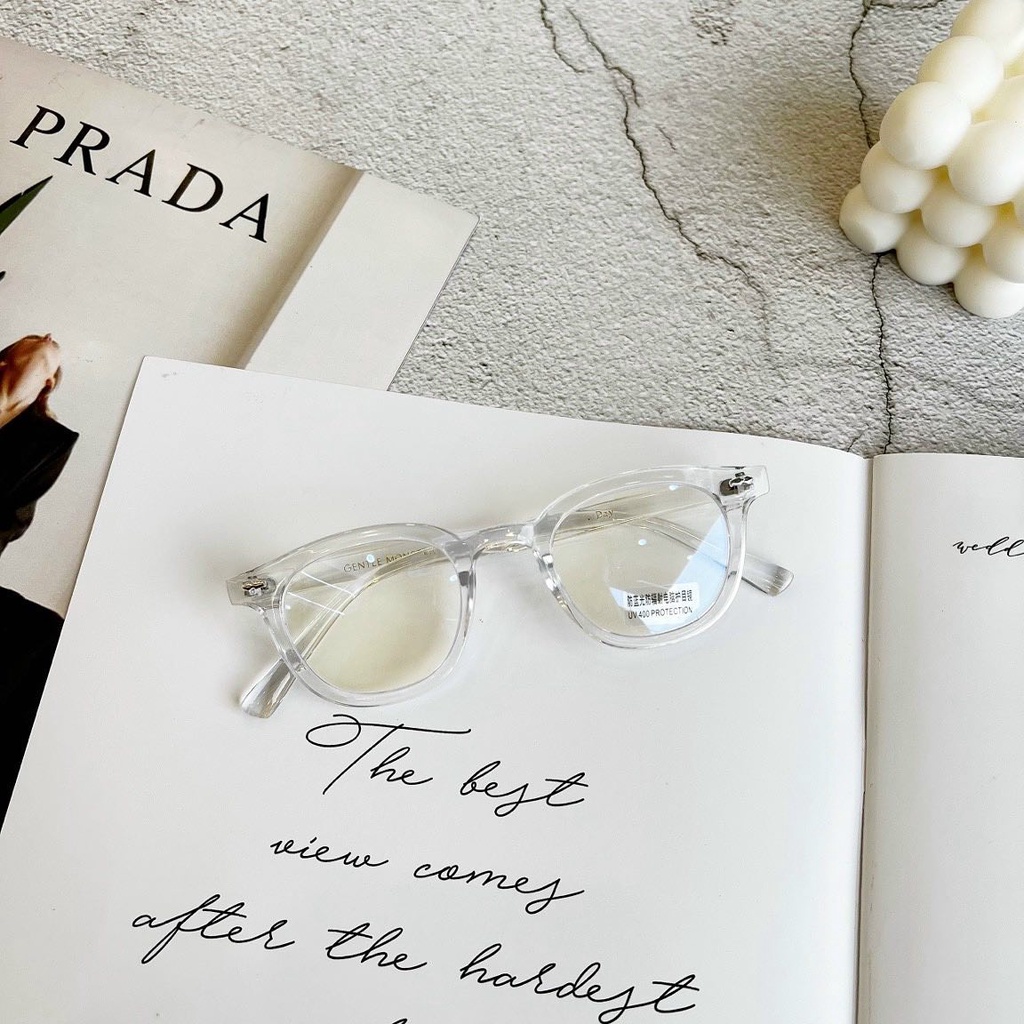 PRADA
GENTLE
Pay
防蓝光防辐射电脑护目镜
UV 400 PROTECTION
wedd
The best
view comes
after the hardest